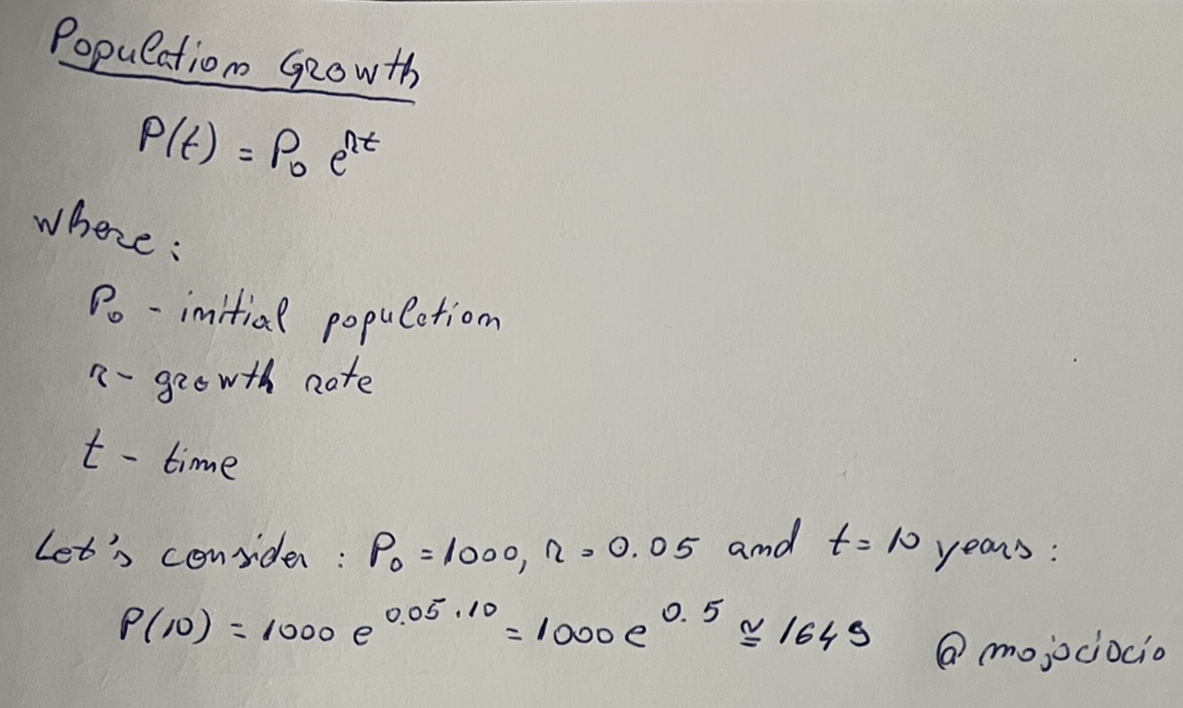 Population Growth
P(t) = P₀ e^{rt}
where:
P₀ - initial population
r - growth rate
t - time
Let's consider : P₀ = 1000, r = 0.05 and t = 10 years :
P(10) = 1000 e^{0.05 · 10} = 1000 e^{0.5} ≅ 1649 @mojociocio